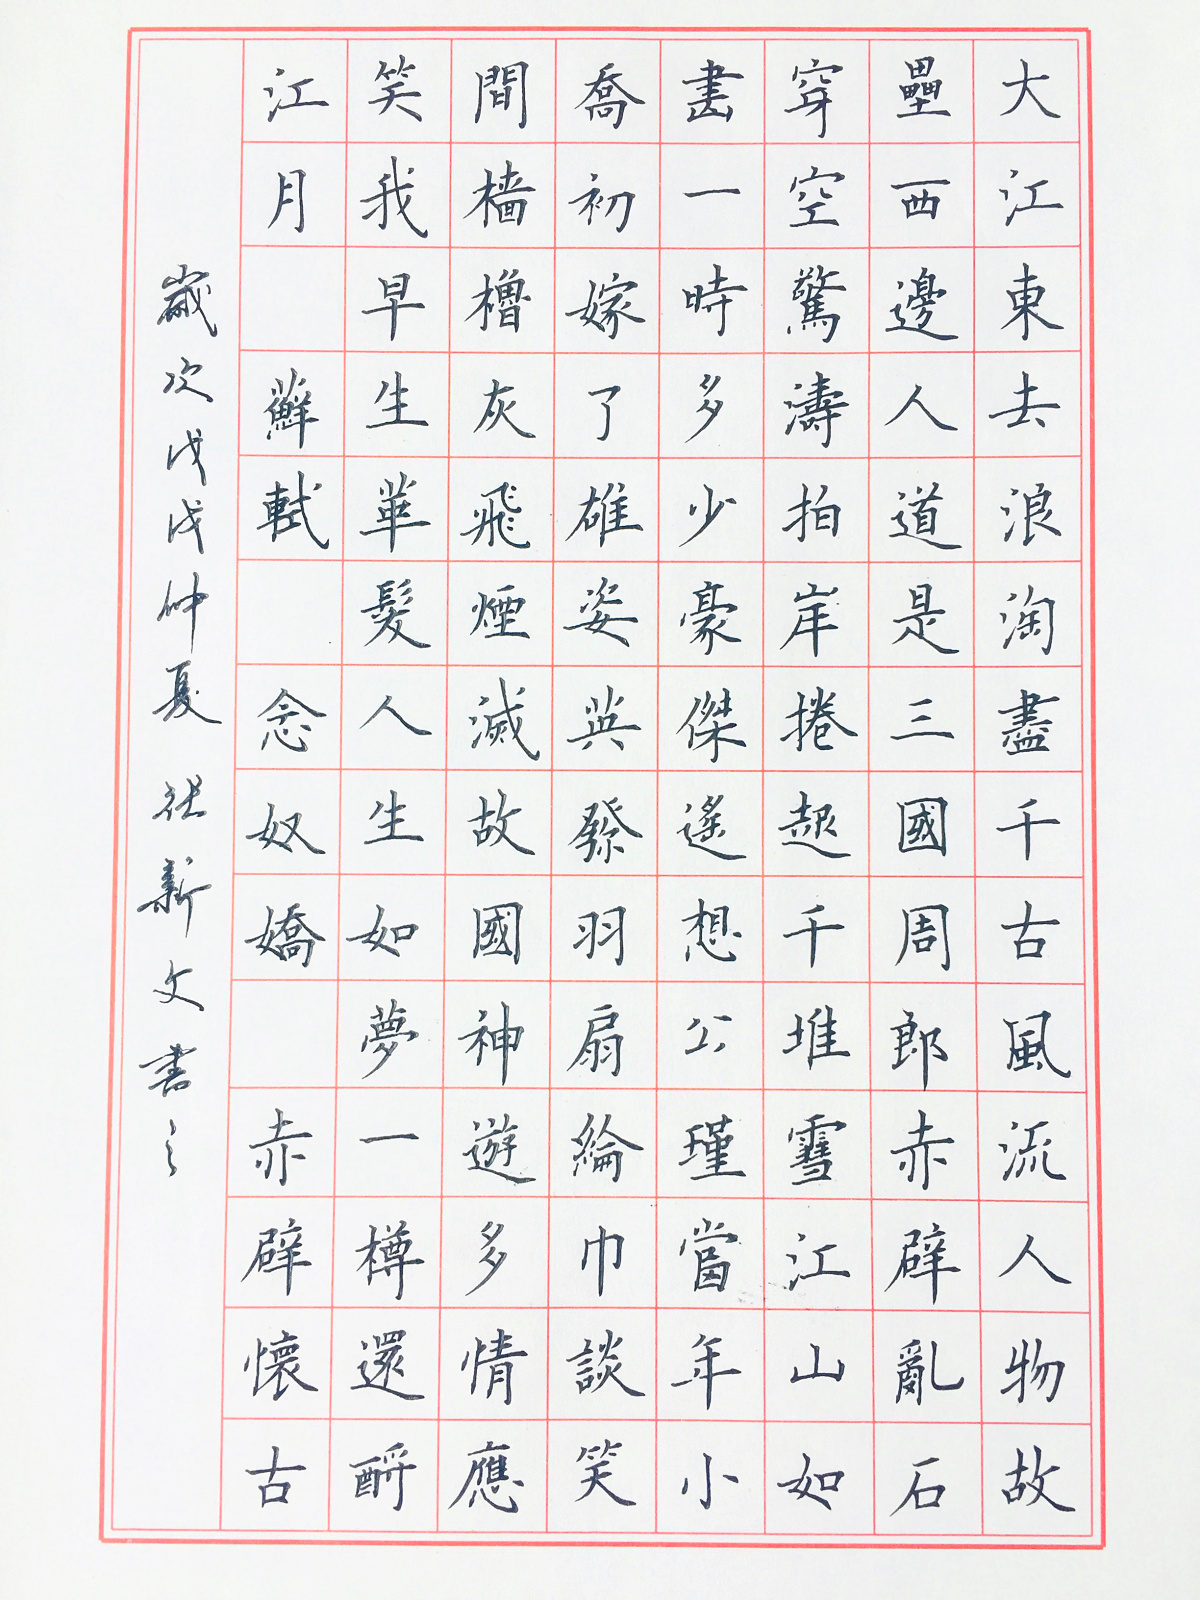 大江東去浪淘盡千古風流人物故
壘西邊人道是三國周郎赤壁亂石
穿空驚濤拍岸捲起千堆雪江山如
畫一時多少豪傑遙想公瑾當年小
喬初嫁了雄姿英發羽扇綸巾談笑
間檣櫓灰飛煙滅故國神遊多情應
笑我早生華髮人生如夢一樽還酹
江月 蘇軾 念奴嬌 赤壁懷古
歲次戊戌仲夏 張新文書之